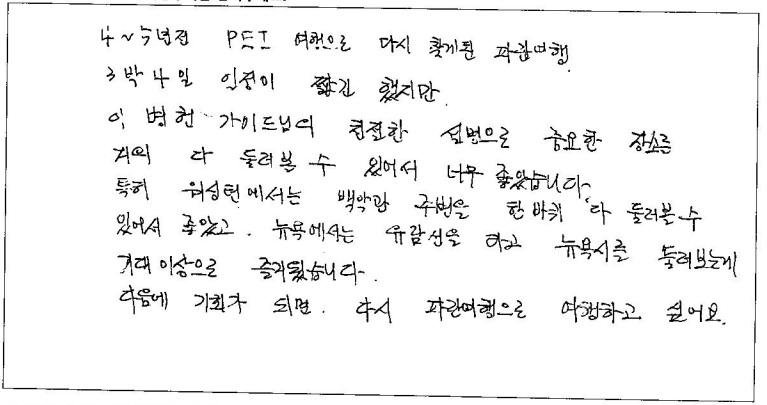 4~5년전 PEI 여행으로 다시 찾게된 파란여행.
3박 4일 일정이 짧긴 했지만
이병헌 가이드님의 친절한 설명으로 중요한 장소를
거의 다 둘러볼 수 있어서 너무 좋았습니다.
특히 워싱턴에서는 백악관 주변을 한바퀴 다 둘러볼 수
있어서 좋았고. 뉴욕에서는 유람선을 타고 뉴욕시를 둘러보는게
기대 이상으로 즐거웠습니다.
다음에 기회가 되면. 다시 파란여행으로 여행하고 싶어요.